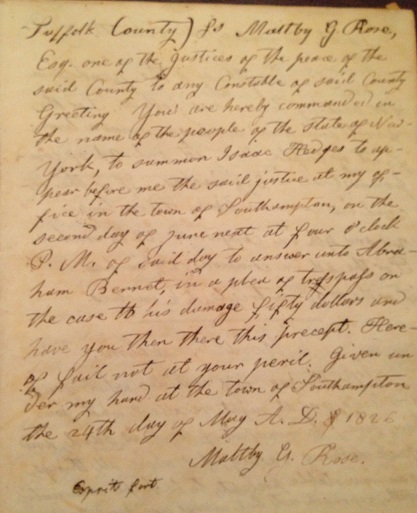 Suffolk County) Ss Maltby G Rose,
Esq. one of the justices of the peace of the
said County to any Constable of said County
Greeting You are hereby commanded in
the name of the people of the State of New-
York, to summon Isaac Hedges to ap-
pear before me the said justice at my of-
fice in the town of Southampton, on the
second day of june next at four o'clock
P. M. of said day to answer unto Abra-
ham Bennet, in a plea of trespass on
the case to his damage fifty dollars and
have you then there this precept. Here-
of fail not at your peril. Given un
der my hand at the town of Southampton
the 24th day of May A. D. 1826
Maltby G. Rose.